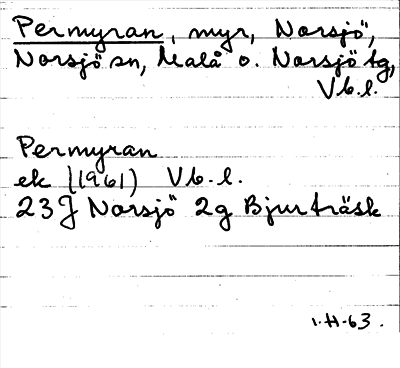 Permyran, myr, Norsjö,
Norsjö sn, Malå o. Norsjö tg,
Vb.l.
Permyran
ek (1961) Vb.l.
23J Norsjö 2g Bjurträsk
1.H-63.